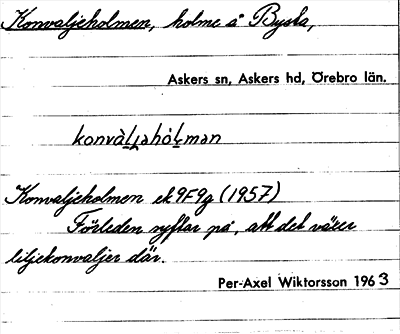 Konvaljeholmen, holme å Bysta,
Askers sn, Askers hd, Örebro län.
konvàl̬jəhól̬mən
Konvaljeholmen ek 9F9g (1957)
Förleden syftar på, att det växer
liljekonvaljer där.
Per-Axel Wiktorsson 1963